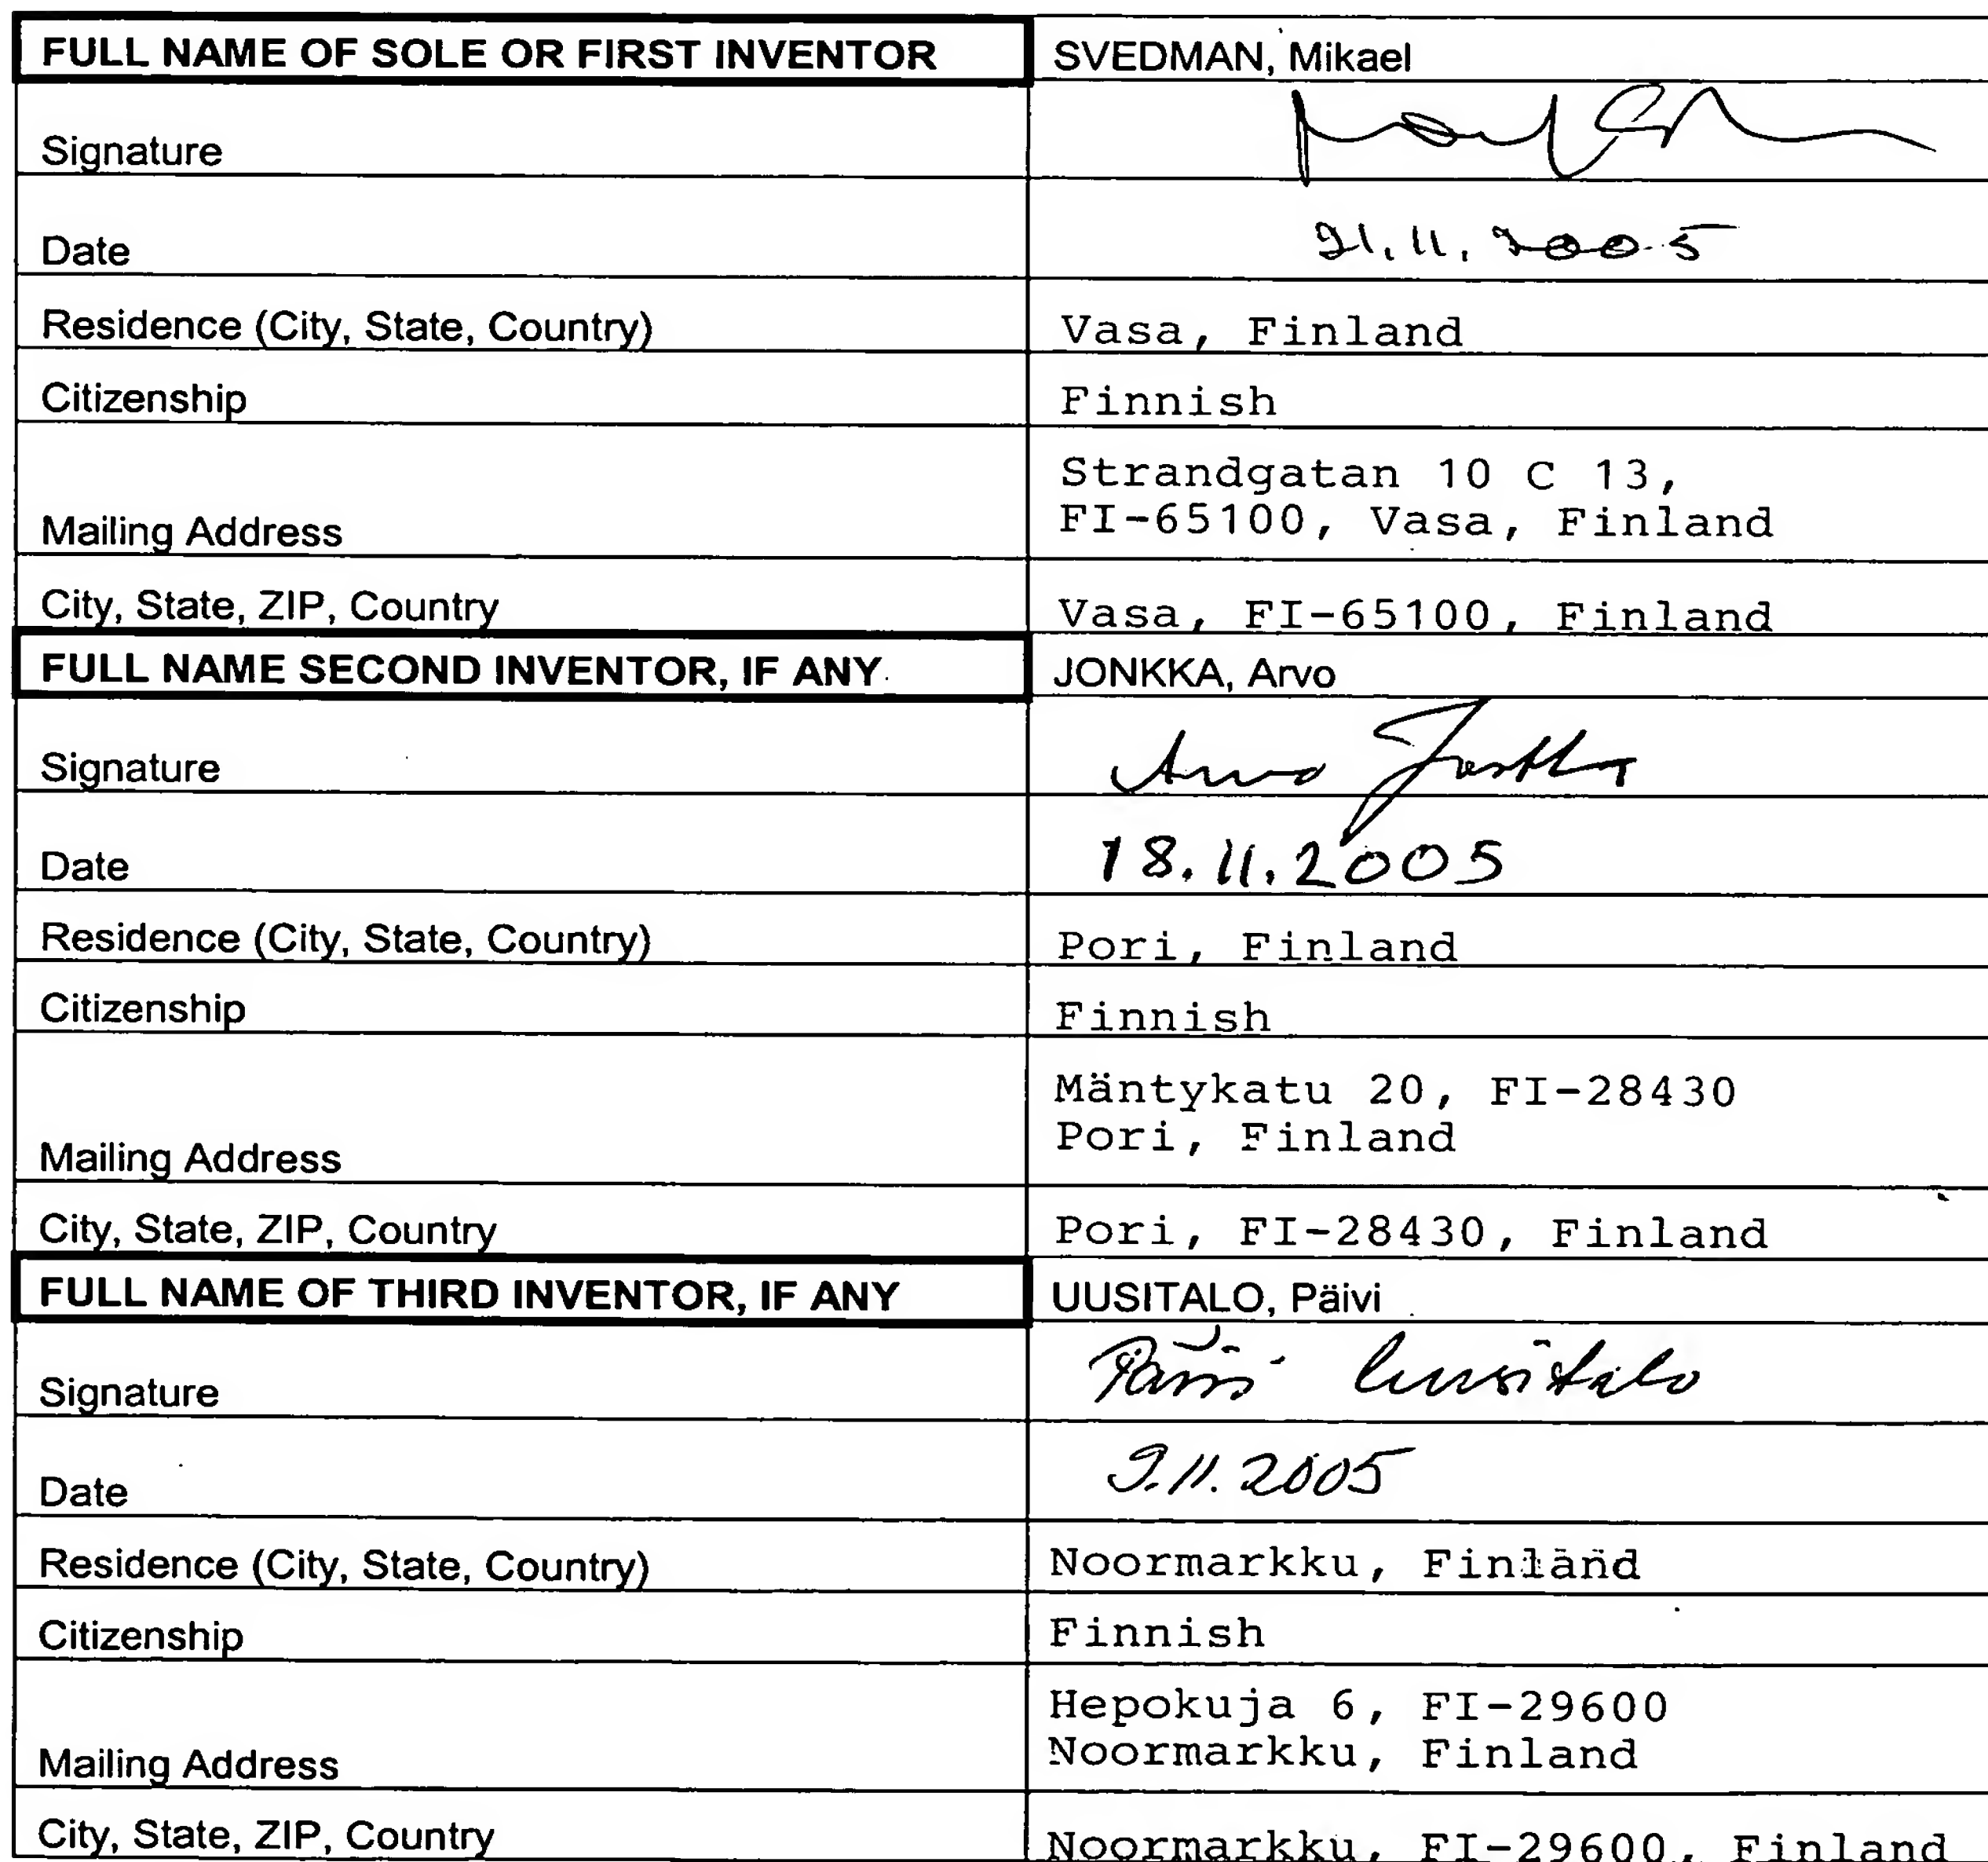 FULL NAME OF SOLE OR FIRST INVENTOR SVEDMAN, Mikael
Signature
Date 21.11.2005
Residence (City, State, Country) Vasa, Finland
Citizenship Finnish
Strandgatan 10 C 13,
Mailing Address FI-65100, Vasa, Finland
City, State, ZIP, Country Vasa, FI-65100, Finland
FULL NAME SECOND INVENTOR, IF ANY JONKKA, Arvo
Signature Arvo Jonkka
Date 18.11.2005
Residence (City, State, Country) Pori, Finland
Citizenship Finnish
Mäntykatu 20, FI-28430
Mailing Address Pori, Finland
City, State, ZIP, Country Pori, FI-28430, Finland
FULL NAME OF THIRD INVENTOR, IF ANY UUSITALO, Päivi
Signature Päivi Uusitalo
Date 9.11.2005
Residence (City, State, Country) Noormarkku, Finland
Citizenship Finnish
Hepokuja 6, FI-29600
Mailing Address Noormarkku, Finland
City, State, ZIP, Country Noormarkku, FI-29600, Finland